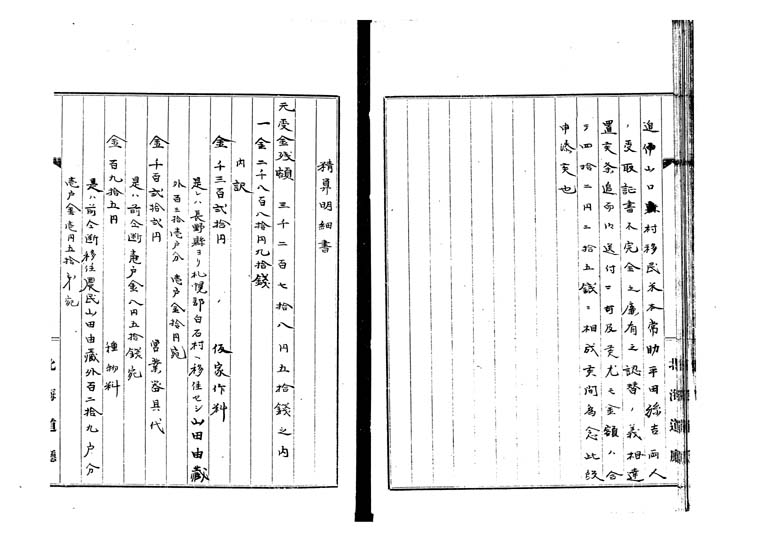 追伸山口縣村移民米本常助平田弥吉両人
受取証書不完全之廉有之認替ノ義相達
置候条追而御送付ニ可及尤モ金額ハ合
四拾二円三拾五銭ニ相成候間為念此段
申添候也
北海道廳
精算明細書
元受金残額 三千二百七拾八円五拾銭之内
一金二千八百八拾円九拾銭
内訳
金千三百弐拾円 仮家作料
是レハ長野縣ヨリ札幌郡白石村ヘ移住セシ山田由藏
外百三拾壱戸分 壱戸金拾円宛
金千百弐拾弐円 営業器具代
是ハ前仝断壱戸金八円五拾銭宛
金百九拾五円 種物料
是ハ前仝断移住農民山田由藏外百二拾九戸分
壱戸金壱円五拾銭宛
北海道廳